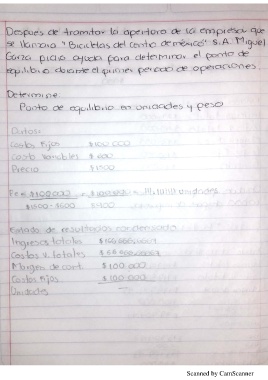 Despues de tramitar la apertura de su empresa que
se llamara "Bicicletas del centro de mexico" S.A. Miguel
Garza pidio ayuda para determinar el punto de
equilibrio durante el primer periodo de operaciones.
Determine
Punto de equilibrio en unidades y peso
Datos:
Costos fijos $100 000
Costo Variables $ 600
Precio
$100 000
Estado de resultados condensado
Ingresos totales
Costos v. totales
Margen de cont. $100 000
Costos fijos $100 000
Scanned by CamScanner